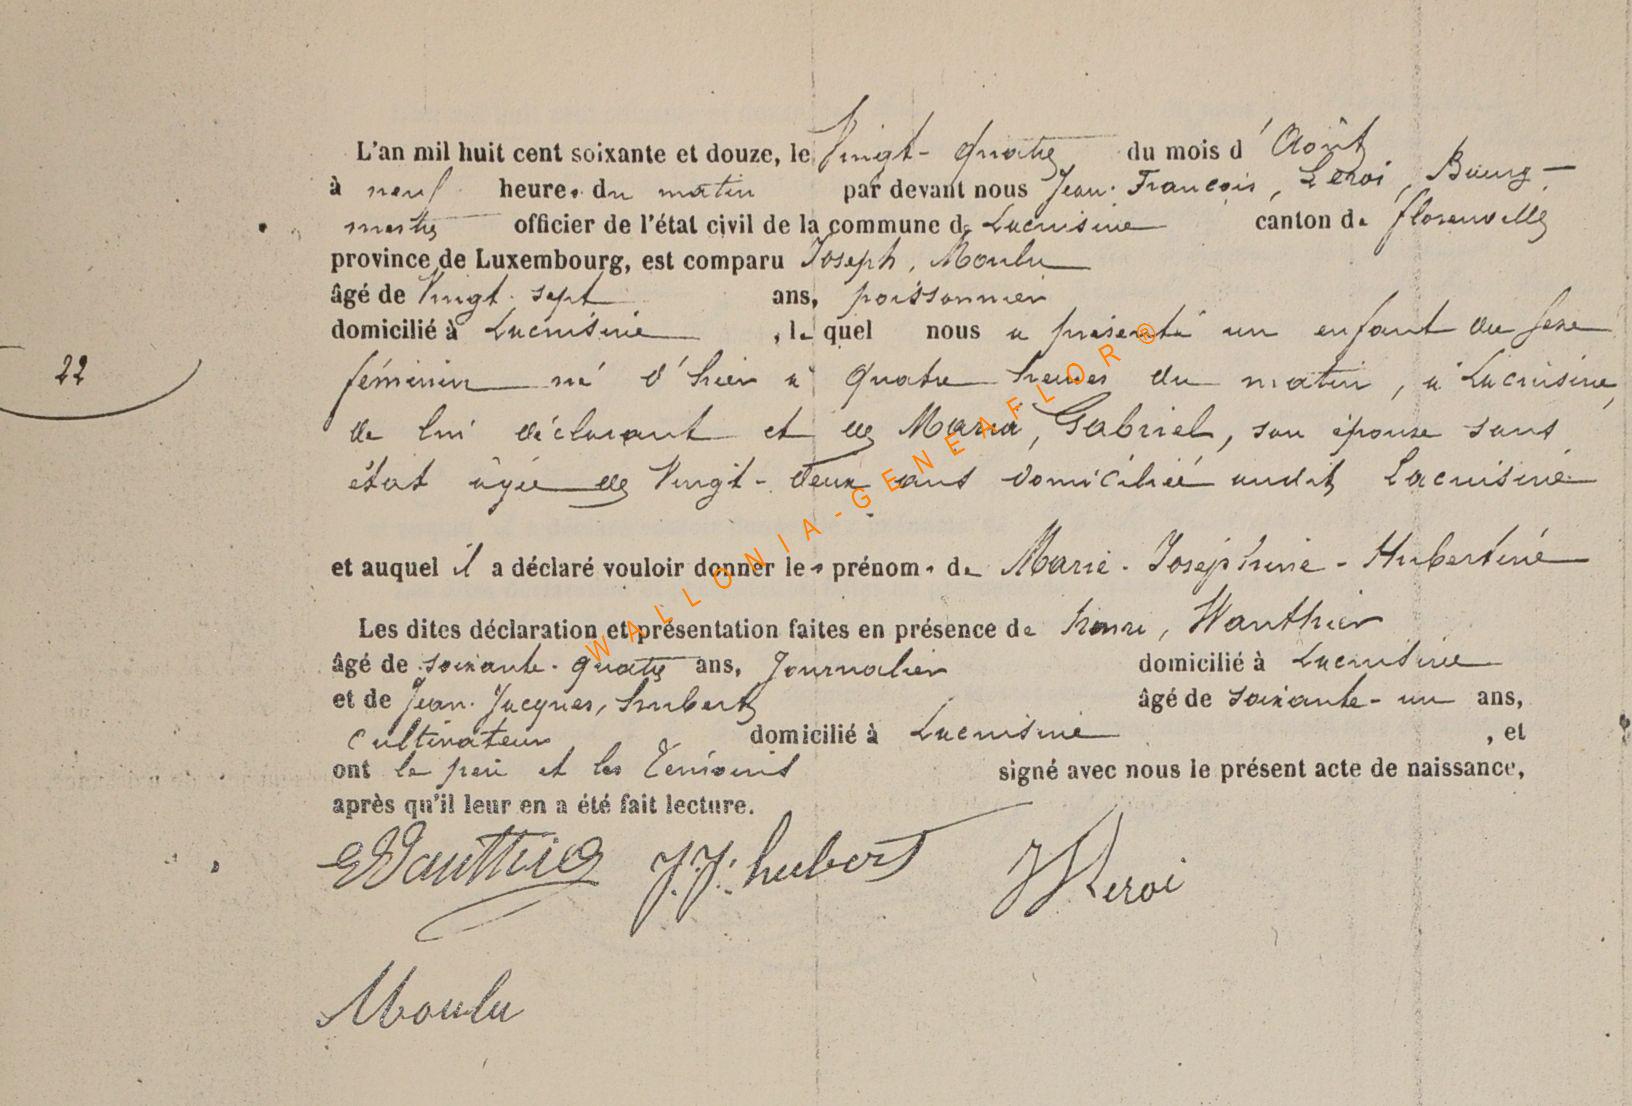 L'an mil huit cent soixante et douze, le Vingt-quatre du mois d'Août
à neuf heures du matin par devant nous Jean-François, Leroi, Bourg-
mestre officier de l'état civil de la commune de Lacuisine canton de florenville
province de Luxembourg, est comparu Joseph, Moulu
âgé de Vingt-sept ans, poissonnier
domicilié à Lacuisine, lequel nous a présenté un enfant du sexe
22
féminin né d'hier à quatre heures du matin, à Lacuisine,
de lui déclarant et de Maria, Gabriel, son épouse sans
état âgée de Vingt-deux ans domiciliée audit Lacuisine
et auquel il a déclaré vouloir donner les prénoms de Marie-Joséphine-Hubertine
Les dites déclaration et présentation faites en présence de henri, Wauthier
âgé de soixante-quatre ans, Journalier domicilié à Lacuisine
et de Jean-Jacques, hubert âgé de soixante-un ans,
Cultivateur domicilié à Lacuisine, et
ont le père et les Témoins signé avec nous le présent acte de naissance,
après qu'il leur en a été fait lecture.
Wauthier J.J. hubert Leroi
Moulu
WALLONIA-GENEAFLOR®